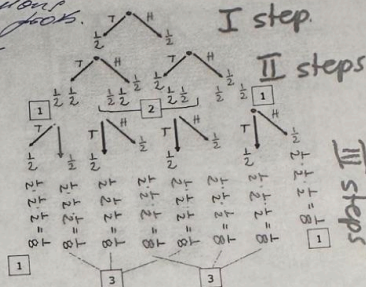 T H I step.
1/2 1/2
T H T H II steps
1/2 1/2 1/2 1/2 1/2 1/2 1/2 1/2
1 2 1
T T H T H
1/2 1/2 1/2 1/2 1/2 1/2 1/2
III steps
1/2·1/2·1/2=1/8
1/2·1/2·1/2=1/8
1/2·1/2·1/2=1/8
1/2·1/2·1/2=1/8
1/2·1/2·1/2=1/8
1/2·1/2·1/2=1/8
1/2·1/2·1/2=1/8
1/2·1/2·1/2=1/8
1 3 3 1